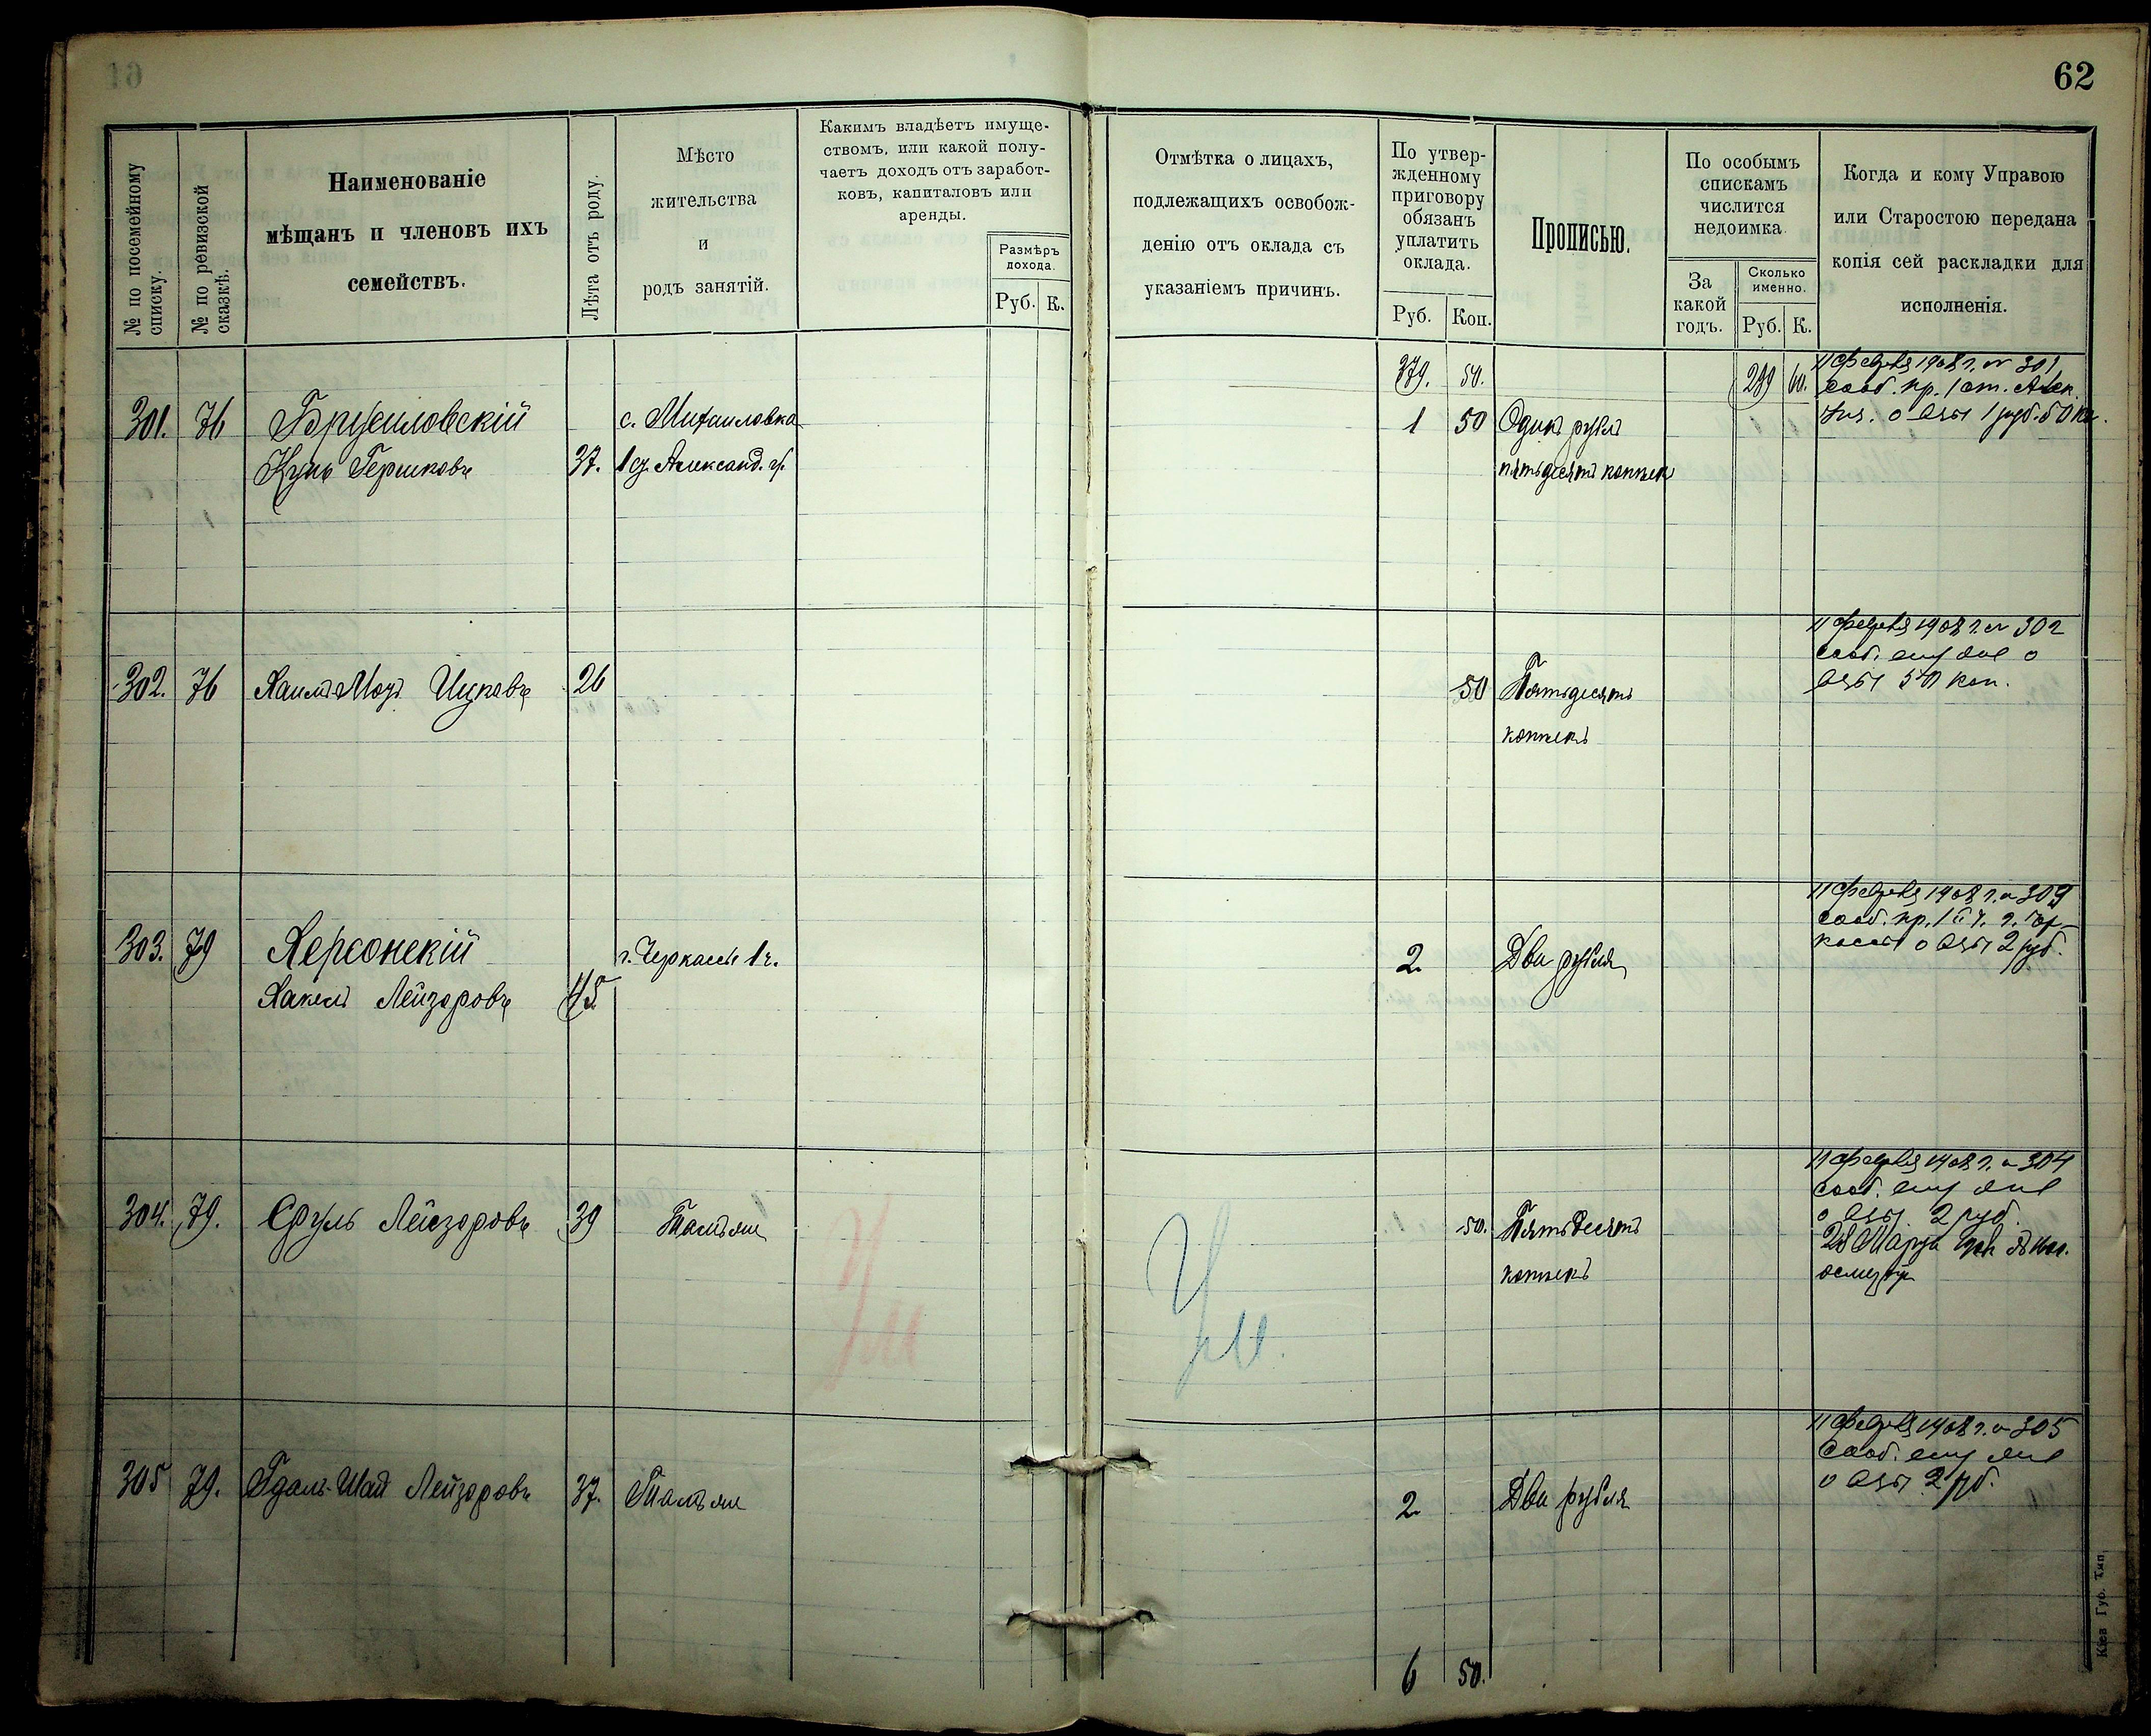 62
№ по посемейному списку.
№ по ревизской сказкѣ.
Наименованіе
мѣщанъ и членовъ ихъ
семействъ.
Лѣта отъ роду.
Мѣсто
жительства
и
родъ занятій.
Какимъ владѣетъ имуще-
ствомъ, или какой полу-
чаетъ доходъ отъ заработ-
ковъ, капиталовъ или
аренды.
Размѣръ
дохода.
Руб. К.
Отмѣтка о лицахъ,
подлежащихъ освобож-
денію отъ оклада съ
указаніемъ причинъ.
По утвер-
жденному
приговору
обязанъ
уплатить
оклада.
Руб. Коп.
Прописью.
По особымъ
спискамъ
числится
недоимка
За
какой
годъ.
Сколько
именно.
Руб. К.
Когда и кому Управою
или Старостою передана
копія сей раскладки для
исполненія.
379. 50.
299 60.
301. 76 Брусиловскій с. Михаиловка 1 50 Одинъ рубль
Гершковъ 37. 1 Александ. пятьдесятъ копѣекъ
11 1908 г. № 301
сооб. пр. 1 ст.
о 1 руб. 50 к.
302. 76 Хаимъ Ицковъ 26 50 Пятьдесятъ
копѣекъ
11 1908 г. № 302
сооб. о
50 коп.
303. 79 Херсонскій г. Черкассы 1 ч. 2 Два рубля
Лейзоровъ 45
11 1908 г. № 303
сооб. пр. 1 ч. г.
о 2 руб.
304. 79. Сруль Лейзоровъ 39 Тамъ же 50. Пятьдесятъ
копѣекъ
11 1908 г. № 304
сооб.
о 2 руб.
28 Марта
Ум
Ум.
305 79. Лейзоровъ 37. Тамъ же 2 Два рубля
11 1908 г. № 305
сооб.
о 2 рб.
6 50.
Кіев. Губ. Тип.